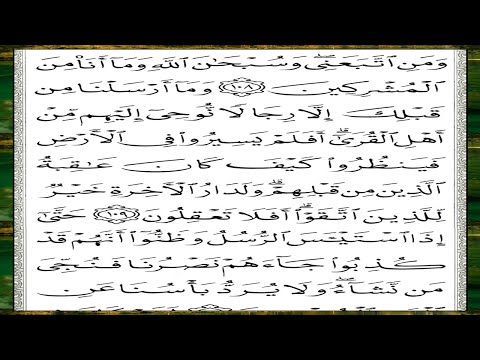 وَمَنِ ٱتَّبَعَنِىۖ وَسُبْحَٰنَ ٱللَّهِ وَمَآ أَنَا۠ مِنَ
ٱلْمُشْرِكِينَ ١٠٨ وَمَآ أَرْسَلْنَا مِن
قَبْلِكَ إِلَّا رِجَالًا نُّوحِىٓ إِلَيْهِم مِّنْ
أَهْلِ ٱلْقُرَىٰٓۗ أَفَلَمْ يَسِيرُوا۟ فِى ٱلْأَرْضِ
فَيَنظُرُوا۟ كَيْفَ كَانَ عَٰقِبَةُ
ٱلَّذِينَ مِن قَبْلِهِمْۗ وَلَدَارُ ٱلْءَاخِرَةِ خَيْرٌ
لِّلَّذِينَ ٱتَّقَوْا۟ۗ أَفَلَا تَعْقِلُونَ ١٠٩ حَتَّىٰٓ
إِذَا ٱسْتَيْـَٔسَ ٱلرُّسُلُ وَظَنُّوٓا۟ أَنَّهُمْ قَدْ
كُذِبُوا۟ جَآءَهُمْ نَصْرُنَا فَنُجِّىَ
مَن نَّشَآءُۖ وَلَا يُرَدُّ بَأْسُنَا عَنِ